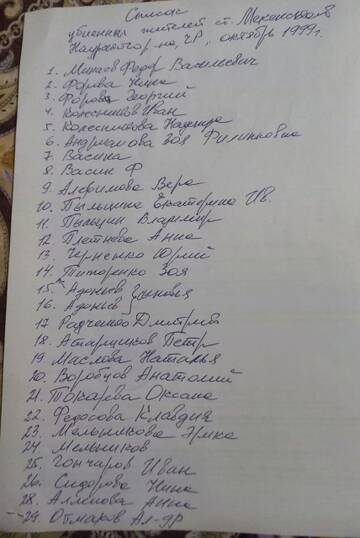 Список
убиенных жителей ст. Мекенской
Наурского р-на, ЧР, октябрь 1999г.
1. Минаев Федор Васильевич
2. Форова Нина
3. Форова Георгий
4. Колесников Иван
5. Колесникова Надежда
6. Андрианова Зоя Филипповна
7. Васина
8. Васин Ф
9. Алфимова Вера
10. Пыльцина Екатерина Ив.
11. Пыльцин Владимир
12. Плетнева Анна
13. Черненко Юрий
14. Титоренко Зоя
15. Адоньев
16. Адоньев } сыновья
17. Радченко Дмитрий
18. Атарщиков Петр
19. Маслова Наталья
20. Воробцов Анатолий
21. Токарева Оксана
22. Федосова Клавдия
23. Мельникова Эмма
24. Мельников
25. Гончаров Иван
26. Сидорова Нина
28. Анна
29. Отмаров Ал-др